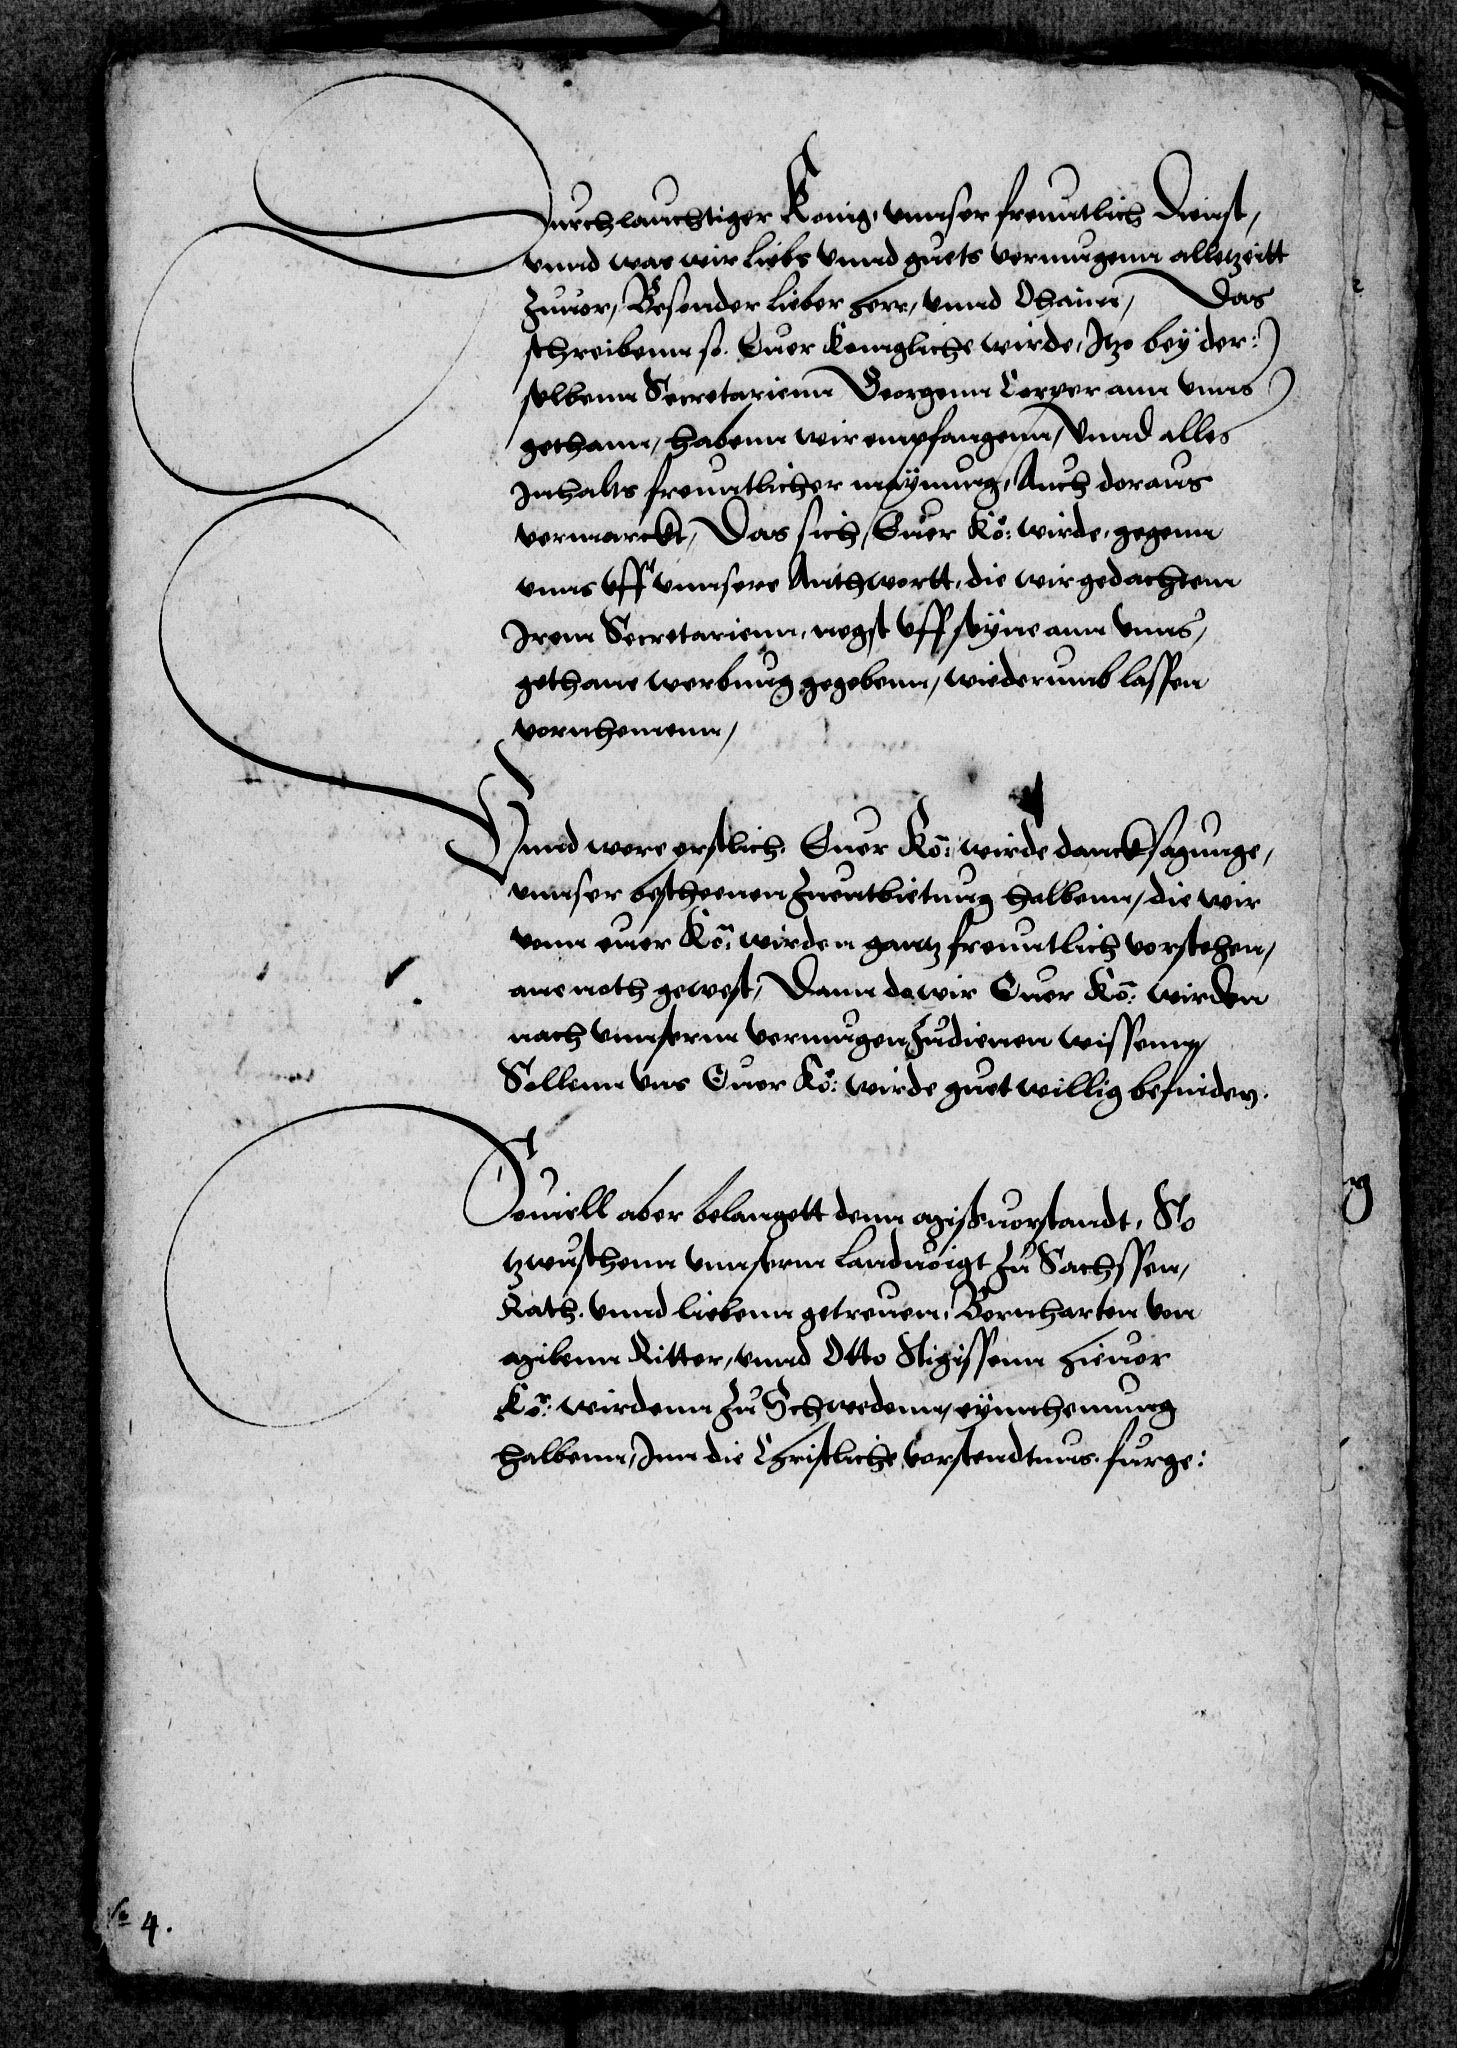 Durchlauchtiger Konig, vnnser freuntlich Dienst,
vnnd was wir liebs vnnd guets vermugenn alletzeitt
Zuuor, Besonder lieber Herr, vnnd Ohaim, Das
schreibenn so. Euer Konigliche wirde, Itzo bey der:
selbenn Secretarienn Georgenn Corper ann vnns
gethann, habenn wir empfangenn, Vnnd alles
Inhalts freuntlicher maÿnung, Auch doraus
vermarckt, Das sich, Euer Kö: wirde, gegenn
vnns vff vnnsere Anthwortt, die wir gedachtem
Irenn Secretarienn, negst vff seÿne ann vnns,
gethane werbung gegebenn, wiederumb lassen
vornhemenn,
Vnnd were erstlich. Euer Kö: wirde dancksagunge,
vnnser bescheenen Zuentbietung halbenn, die wir
vonn euer Kö: wirden gantz freuntlich vorstehen,
ane noth gewest, Dann do wir Euer Kö: wirden
nach vnnserm vermugen Zudienen wissenn,
Sollenn vns Euer Kö: wirde guet willig befinden.
Souiell aber belangett denn mißuorstandt, So
tzwuschenn vnnserm Landuoigt Zu Sachssen,
Rath. vnnd liebenn getreuen, Bernharten von
Milenn Ritter, vnnd Otto Nigissenn
Kö: wirdenn Zu Schwedenn, eÿnnhemung
halbenn, Inn die Christliche vorstendtnus. furge:
4.